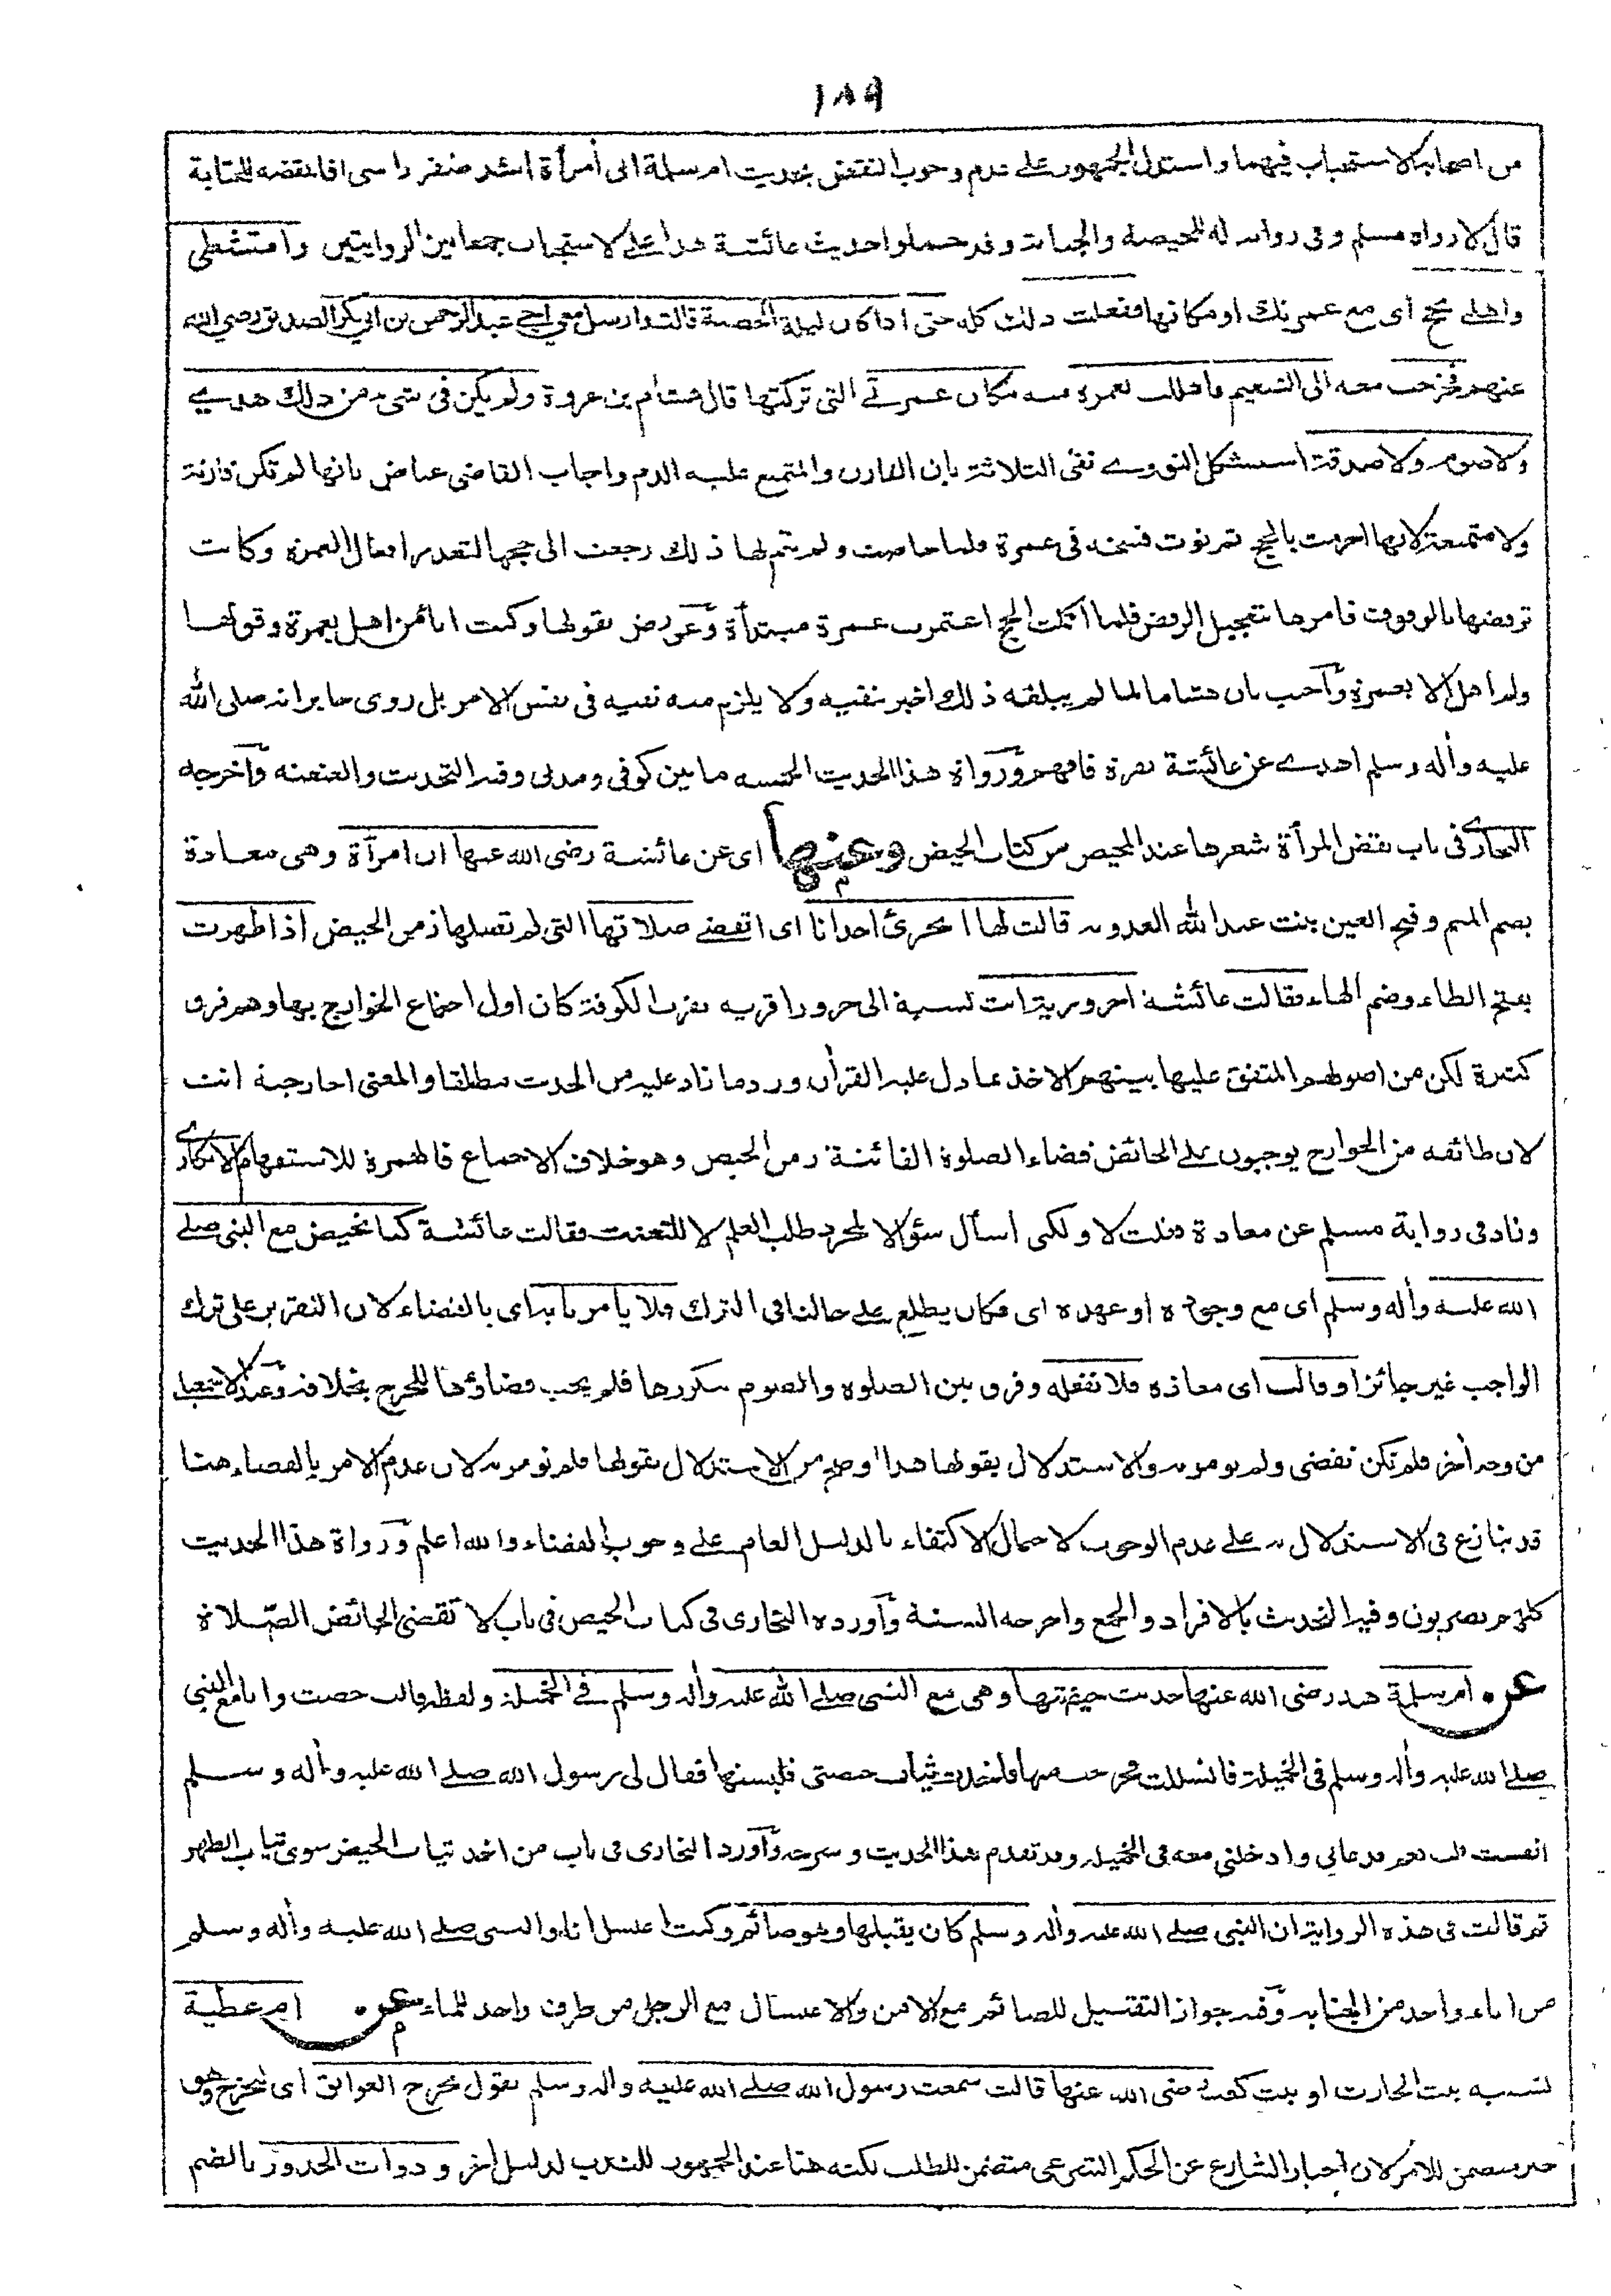 ١٨٩
من اصحابه الاستحباب فيهما واستدل الجمهور على عدم وجوب النقض بحديث ام سلمة انى أمرأة اشد ضفر راسى افانقضه للجنابة
قال لا رواه مسلم وفى رواية له للحيضة والجنابة وقد حملوا حديث عائشة هذا على الاستحباب جمعا بين الروايتين وامتشطى
واهلى بحج اى مع عمرتك او مكانها ففعلت ذلك كله حتى اذا كان ليلة الحصبة قالت ارسل معى اخى عبد الرحمن بن ابى بكر الصديق رضى الله
عنهم فخرجت معه الى التنعيم فاهللت بعمرة منه مكان عمرتى التى تركتها قال هشام بن عروة ولم يكن فى شىء من ذلك هدى
ولا صوم ولا صدقة استشكل النووى نفى الثلاثة بان القارن والمتمتع عليه الدم واجاب القاضى عياض بانها لم تكن قارنة
ولا متمتعة لانها احرمت بالحج ثم نوت فسخه فى عمرة فلما حاضت ولم يتم لها ذلك رجعت الى حجها لتعذر افعال العمرة وكانت
ترفضها بالوقوف فامرها بتعجيل الرفض فلما اكملت الحج اعتمرت عمرة مبتدأة وعورض بقولها وكنت انا ممن اهل بعمرة وقولها
ولم اهل الا بعمرة وأجيب بان هشاما لما لم يبلغه ذلك اخبر بنفيه ولا يلزم منه نفيه فى نفس الامر بل روى جابر انه صلى الله
عليه وأله وسلم اهدى عن عائشة بقرة فافهم ورواة هذا الحديث الخمسة ما بين كوفى ومدنى وفيه التحديث والعنعنة وأخرجه
البخارى فى باب نقض المرأة شعرها عند المحيض من كتاب الحيض وعنها اى عن عائشة رضى الله عنها ان امرأة وهى معاذة
بضم الميم وفتح العين بنت عبد الله العدوية قالت لها اتجزئ احدانا اى اتقضى صلاتها التى لم تصلها زمن الحيض اذا طهرت
بفتح الطاء وضم الهاء فقالت عائشة احرورية انت نسبة الى حرورا قرية بقرب الكوفة كان اول اجتماع الخوارج بها وهم فرق
كثيرة لكن من اصولهم المتفق عليها بينهم الاخذ بما دل عليه القرأن ورد ما زاد عليه من الحديث مطلقا والمعنى اخارجية انت
لان طائفة من الخوارج يوجبون على الحائض قضاء الصلوة الفائتة زمن الحيض وهو خلاف الاجماع فالهمزة للاستفهام الانكارى
وزاد فى رواية مسلم عن معاذة فقلت لا ولكنى أسأل سؤالا لمجرد طلب العلم لا للتعنت فقالت عائشة كنا نحيض مع النبى صلى
الله عليه وأله وسلم اى مع وجوده او عهده اى فكان يطلع على حالنا فى الترك فلا يأمرنا به اى بالقضاء لان التقرير على ترك
الواجب غير جائز او قالت اى معاذة فلا نفعله وفرق بين الصلوة والصوم بتكررها فلم يجب قضاؤها للحرج بخلافه وعند الاسمعيلى
من وجه أخر فلم نكن نقضى ولم نؤمر به والاستدلال بقولها هذا اوضح من الاستدلال بقولها فلم نؤمر به لان عدم الامر بالقضاء هنا
قد ينازع فى الاستدلال به على عدم الوجوب لاحتمال الاكتفاء بالدليل العام على وجوب القضاء والله اعلم ورواة هذا الحديث
كلهم بصريون وفيه التحديث بالافراد والجمع واخرجه الستة وأورده البخارى فى كتاب الحيض فى باب لا تقضى الحائض الصّلاة
عن ام سلمة هند رضى الله عنها حديث حيضتها وهى مع النبى صلى الله عليه وأله وسلم فى الخميلة ولفظه قالت حضت وانا مع النبى
صلى الله عليه وأله وسلم فى الخميلة فانسللت فخرجت منها فاخذت ثياب حيضتى فلبستها فقال لى رسول الله صلى الله عليه وأله وسلم
انفست قلت نعم فدعانى وادخلنى معه فى الخميلة وقد تقدم هذا الحديث وشرحه وأورد البخارى فى باب من اخذ ثياب الحيض سوى ثياب الطهر
ثم قالت فى هذه الرواية ان النبى صلى الله عليه وأله وسلم كان يقبلها وهو صائم وكنت اغتسل انا والنبى صلى الله عليه وأله وسلم
من اناء واحد من الجنابة وفيه جواز التقبيل للصائم مع الامن والاغتسال مع الرجل من ظرف واحد للماء عن ام عطية
نسيبة بنت الحارث او بنت كعب رضى الله عنها قالت سمعت رسول الله صلى الله عليه وأله وسلم يقول تخرج العواتق اى لتخرج وهو
خبر متضمن للامر لان اخبار الشارع عن الحكم الشرعى متضمن للطلب لكنه هنا عند الجمهور للندب لدليل أخر وذوات الخدور بالضم